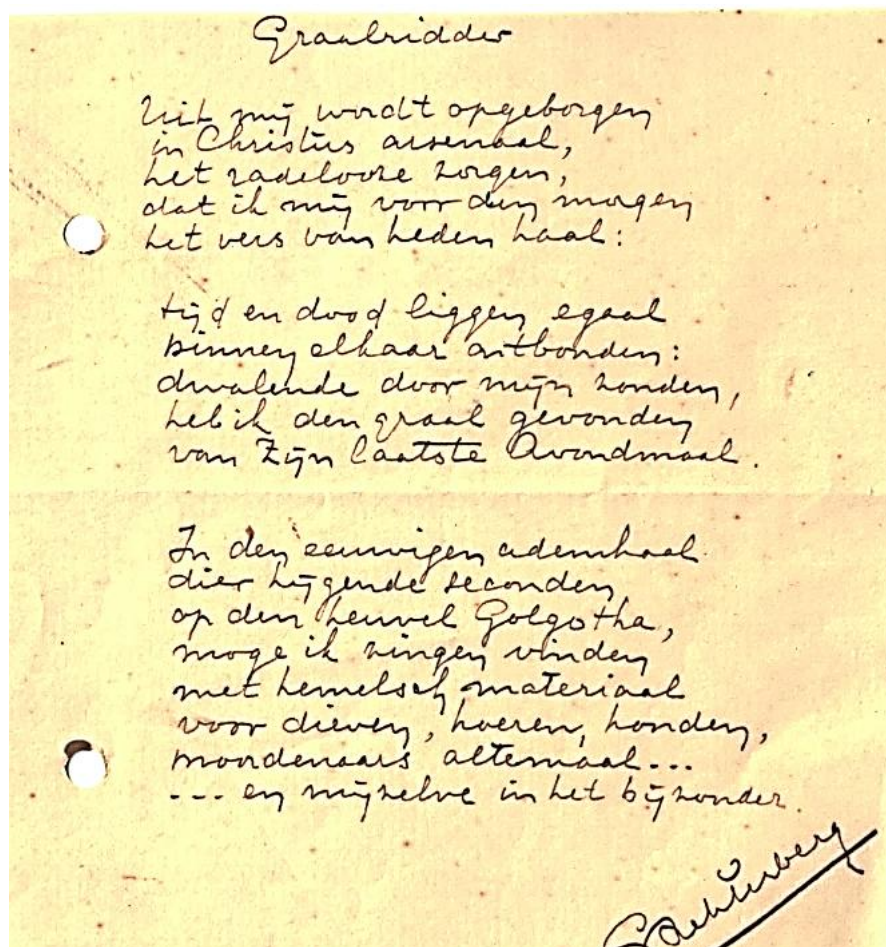 Graalridder
Uit mij wordt opgeborgen
in Christus arsenaal,
het radelooze zorgen,
dat ik mij voor den morgen
het vers van heden haal:
tijd en dood liggen egaal
binnen elkaar ontbonden:
dwalende door mijn zonden,
heb ik den graal gevonden
van Zijn laatste Avondmaal.
In den eeuwigen ademhaal
dier hijgende seconden
op den heuvel Golgotha,
moge ik zingen vinden
met hemelsch materiaal
voor dieven, hoeren, honden,
moordenaars altemaal...
... en mijzelve in het bijzonder.
GAchterberg